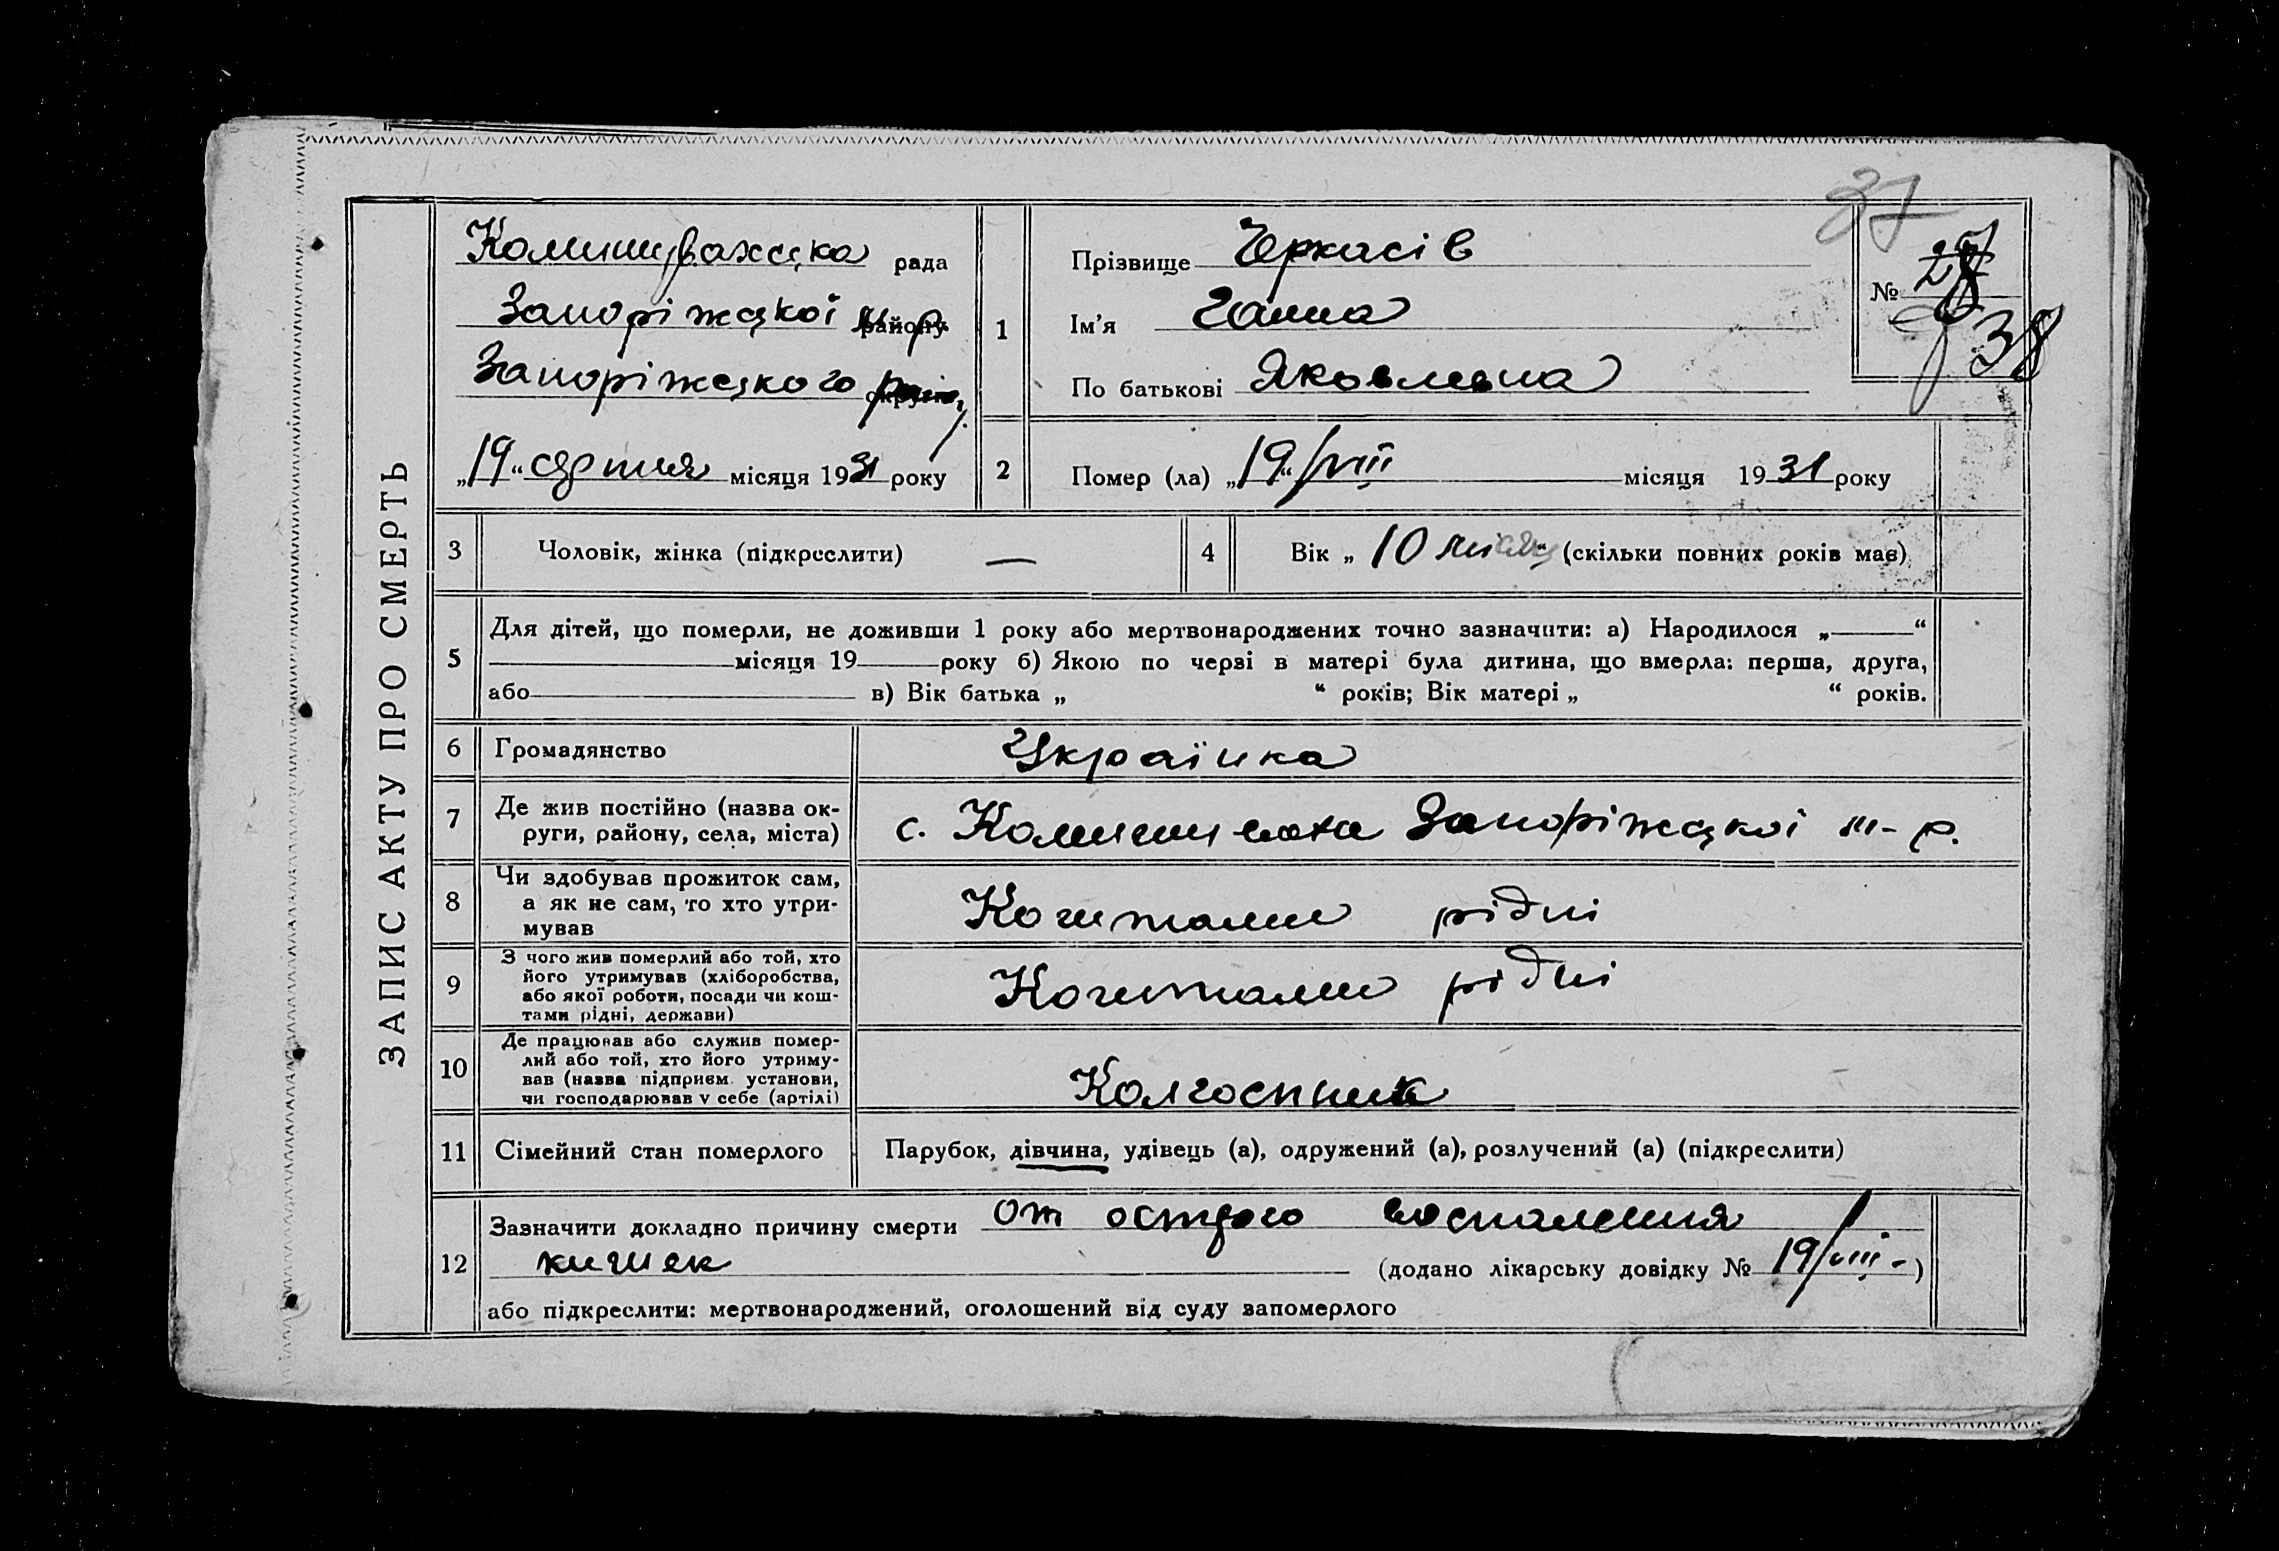 ЗАПИС АКТУ ПРО СМЕРТЬ
37
Комишуваська рада
Запоріжської м.р.
Запоріжського
„19“ серпня місяця 1931 року
1
Прізвище Черкасів
Ім’я Ганна
По батькові Яковлевна
№
38
2
Помер (ла) „19“/VIII місяця 1931 року
3 Чоловік, жінка (підкреслити) —
4 Вік „10 місяц“ (скільки повних років має)
5
Для дітей, що померли, не доживши 1 року або мертвонароджених точно зазначити: а) Народилося „——“
місяця 19 року б) Якою по черзі в матері була дитина, що вмерла: перша, друга,
або в) Вік батька „ “ років; Вік матері „ “ років.
6 Громадянство Українка
7 Де жив постійно (назва ок-
руги, району, села, міста)
с. Комишуваха Запоріжської м-р.
8 Чи здобував прожиток сам,
а як не сам, то хто утри-
мував
Коштами рідні
9 З чого жив померлий або той, хто
його утримував (хліборобства,
або якої роботи, посади чи кош-
тами рідні, держави)
Коштами рідні
10 Де працював або служив помер-
лий або той, хто його утриму-
вав (назва підприєм. установи,
чи господарював у себе (артілі)
Колгоспник
11 Сімейний стан померлого Парубок, дівчина, удівець (а), одружений (а), розлучений (а) (підкреслити)
12
Зазначити докладно причину смерти от острого воспаления
кишек (додано лікарську довідку № 19/VIII-)
або підкреслити: мертвонароджений, оголошений від суду запомерлого